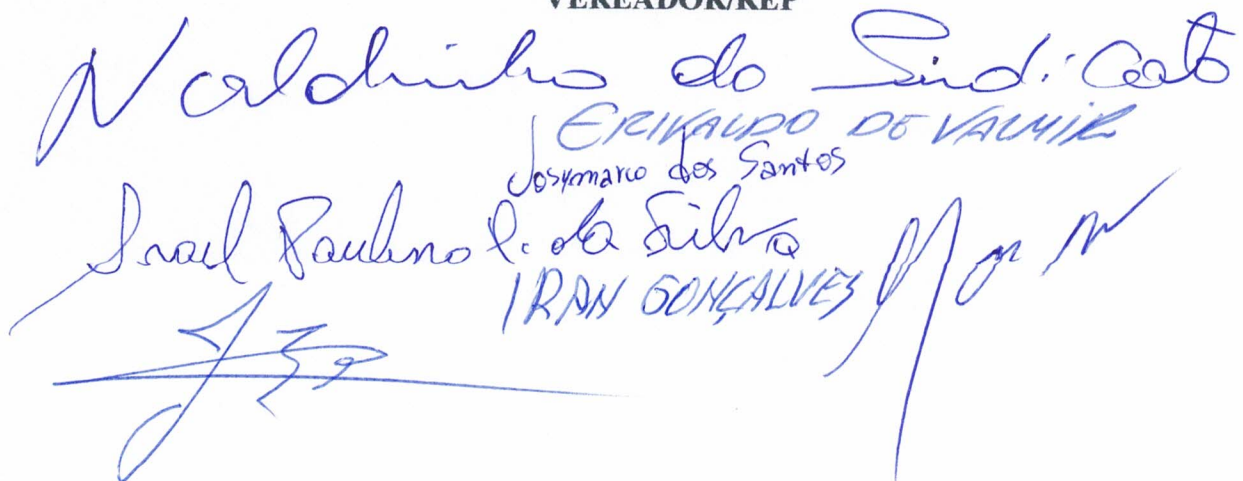 VEREADOR/REP
Naldinho do Sindicato
ERIVALDO DE VALMIR
Josymarco dos Santos
Israel Paulino P. da Silva
IRAN GONÇALVES